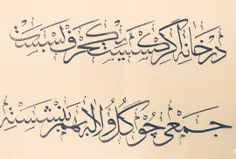 در خانه اگر کس است یک حرف بس است
جمعی چو گل و لاله بهم پیوسته